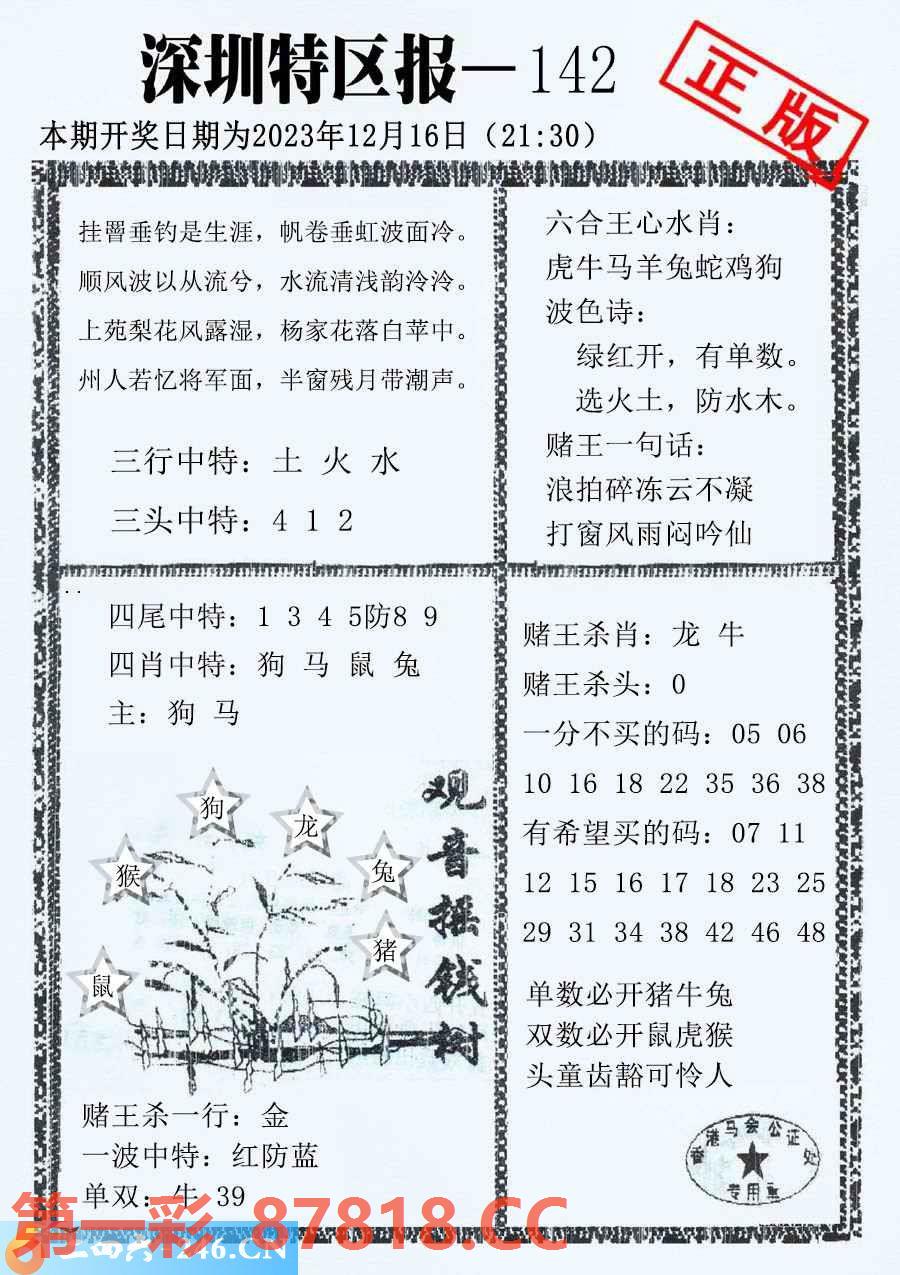 深圳特区报—142
正版
本期开奖日期为2023年12月16日（21:30）
挂罾垂钓是生涯，帆卷垂虹波面冷。
顺风波以从流兮，水流清浅韵泠泠。
上苑梨花风露湿，杨家花落白苹中。
州人若忆将军面，半窗残月带潮声。
三行中特：土 火 水
三头中特：4 1 2
六合王心水肖：
虎牛马羊兔蛇鸡狗
波色诗：
绿红开，有单数。
选火土，防水木。
赌王一句话：
浪拍碎冻云不凝
打窗风雨闷吟仙
四尾中特：1 3 4 5防8 9
四肖中特：狗 马 鼠 兔
主：狗 马
狗
龙
猴
兔
猪
鼠
观音摇钱树
赌王杀一行：金
一波中特：红防蓝
单双：牛 39
赌王杀肖：龙 牛
赌王杀头：0
一分不买的码：05 06
10 16 18 22 35 36 38
有希望买的码：07 11
12 15 16 17 18 23 25
29 31 34 38 42 46 48
单数必开猪牛兔
双数必开鼠虎猴
头童齿豁可怜人
香港马会公证处
专用章
第一彩 87818.CC
246.CN